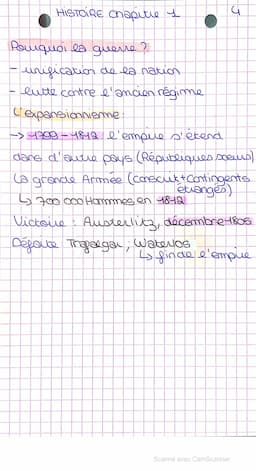 HISTOIRE Chapitre 1
4
Pourquoi la guerre ?
- unification de la nation
- lutte contre l'ancien régime
L'expansionnisme:
-> 1799-1812 l'empire s'étend
dans d'autre pays (Républiques soeurs)
La grande Armée (conscrit + contingents
étrangés)
↳ 700 000 Hommes en 1812
Victoire : Austerlitz, décembre 1805
Défaite Trafalgar ; Waterloo
↳ fin de l'empire
Scanné avec CamScanner